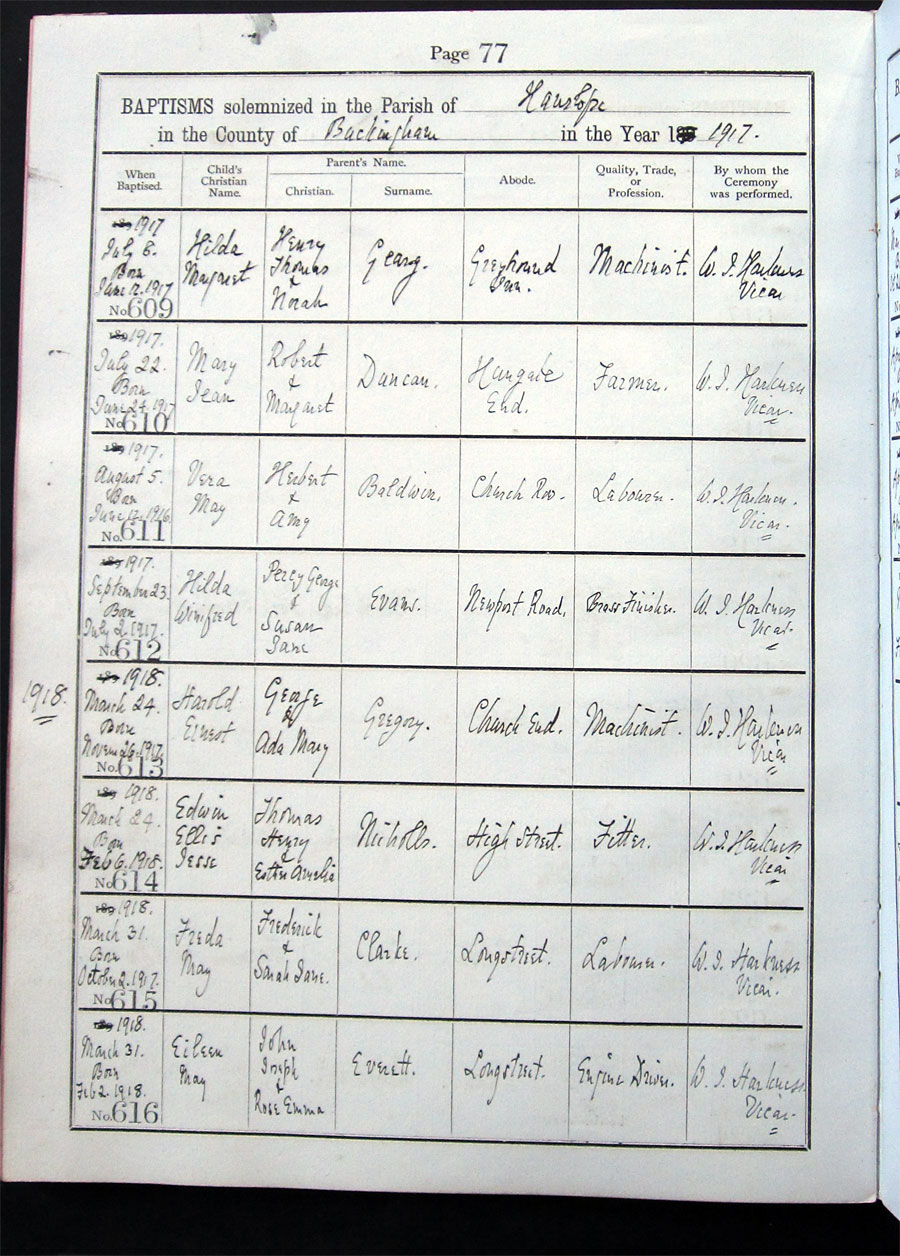 Page 77
BAPTISMS solemnized in the Parish of Hanslope
in the County of Buckingham in the Year 18 1917.
When Baptised.
Child's Christian Name.
Parent's Name.
Christian.
Surname.
Abode.
Quality, Trade, or Profession.
By whom the Ceremony was performed.
189 1917
July 8.
Born
June 12. 1917
No. 609
Hilda
Margaret
Henry
Thomas
&
Norah
Geary.
Greyhound
Inn.
Machinist.
W. I. Harkness
Vicar
189 1917.
July 22.
Born
June 24. 1917
No. 610
Mary
Jean
Robert
&
Margaret
Duncan.
Hungate
End.
Farmer.
W. I. Harkness
Vicar.
189 1917.
August 5.
Born
June 12. 1916
No. 611
Vera
May
Herbert
&
Amy
Baldwin.
Church Row.
Labourer.
W. I. Harkness.
Vicar.
189 1917.
September 23.
Born
July 2. 1917.
No. 612
Hilda
Winifred
Percy George
&
Susan
Jane
Evans.
Newport Road.
Brass Finisher.
W. I. Harkness
Vicar.
1918.
189 1918.
March 24.
Born
Novem 26. 1917.
No. 613
Harold
Ernest
George
&
Ada Mary
Gregory.
Church End.
Machinist.
W. I. Harkness
Vicar
189 1918.
March 24.
Born
Feb 6. 1918.
No. 614
Edwin
Ellis
Jesse
Thomas
Henry
&
Esther Amelia
Nicholls.
High Street.
Fitter.
W. I. Harkness
Vicar
189 1918.
March 31.
Born
October 2. 1917.
No. 615
Freda
May
Frederick
&
Sarah Jane.
Clarke.
Longstreet.
Labourer.
W. I. Harkness
Vicar.
189 1918.
March 31.
Born
Feb 2. 1918.
No. 616
Eileen
May
John
Joseph
&
Rose Emma
Everett.
Longstreet.
Engine Driver.
W. I. Harkness
Vicar.